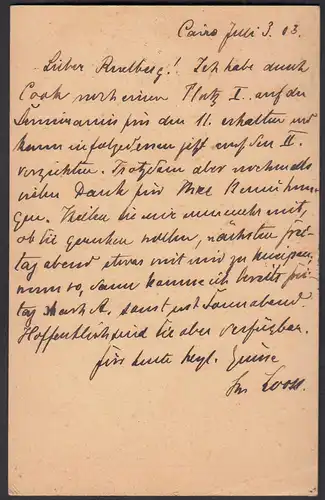 Cairo Juli 3. 03.
Lieber Ruelberg! Ich habe durch
Cook noch einen Platz I. auf der
Semiramis für den 11. erhalten und
kann infolgedessen jetzt auf den II.
verzichten. Trotzdem aber nochmals
vielen Dank für Ihre Bemühun-
gen. Teilen Sie mir nunmehr mit,
ob Sie geneigt wollen, nächsten Frei-
tag abend etwas mit uns zu kneipen,
wenn so, dann komme ich bereits Frei-
tag nach A. sonst erst Sonnabend.
Hoffentlich sind Sie aber verfügbar.
Für heute herzl. Grüsse
Ihr Looss.